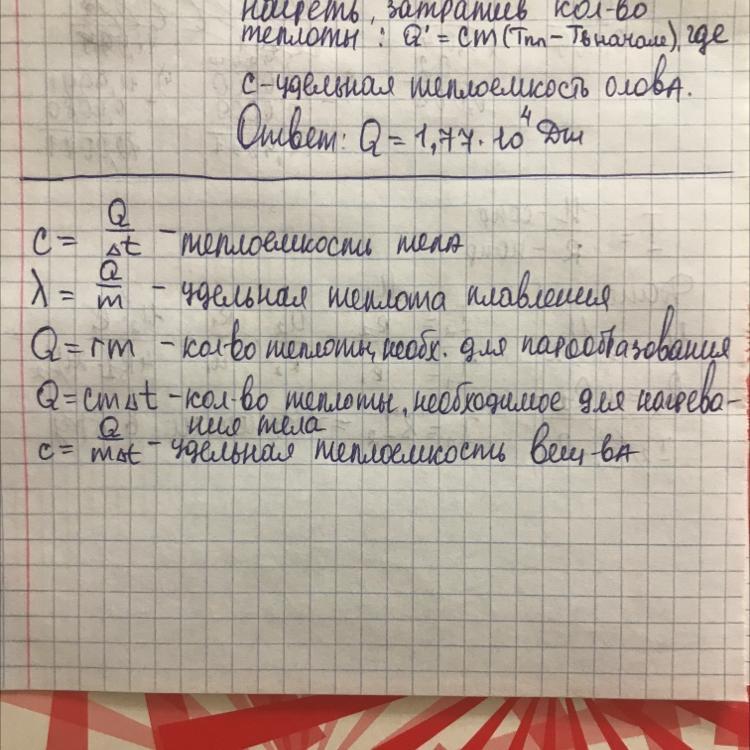 нагреть, затратив кол-во
теплоты: Q' = cm(Tпл – Tв начале), где
c – удельная теплоемкость олова.
Ответ: Q = 1,77 · 10⁴ Дж
c = Q/Δt – теплоемкость тела
λ = Q/m – удельная теплота плавления
Q = rm – кол-во теплоты, необх. для парообразования
Q = cmΔt – кол-во теплоты, необходимое для нагрева-
ния тела
c = Q/mΔt – удельная теплоемкость вещ-ва